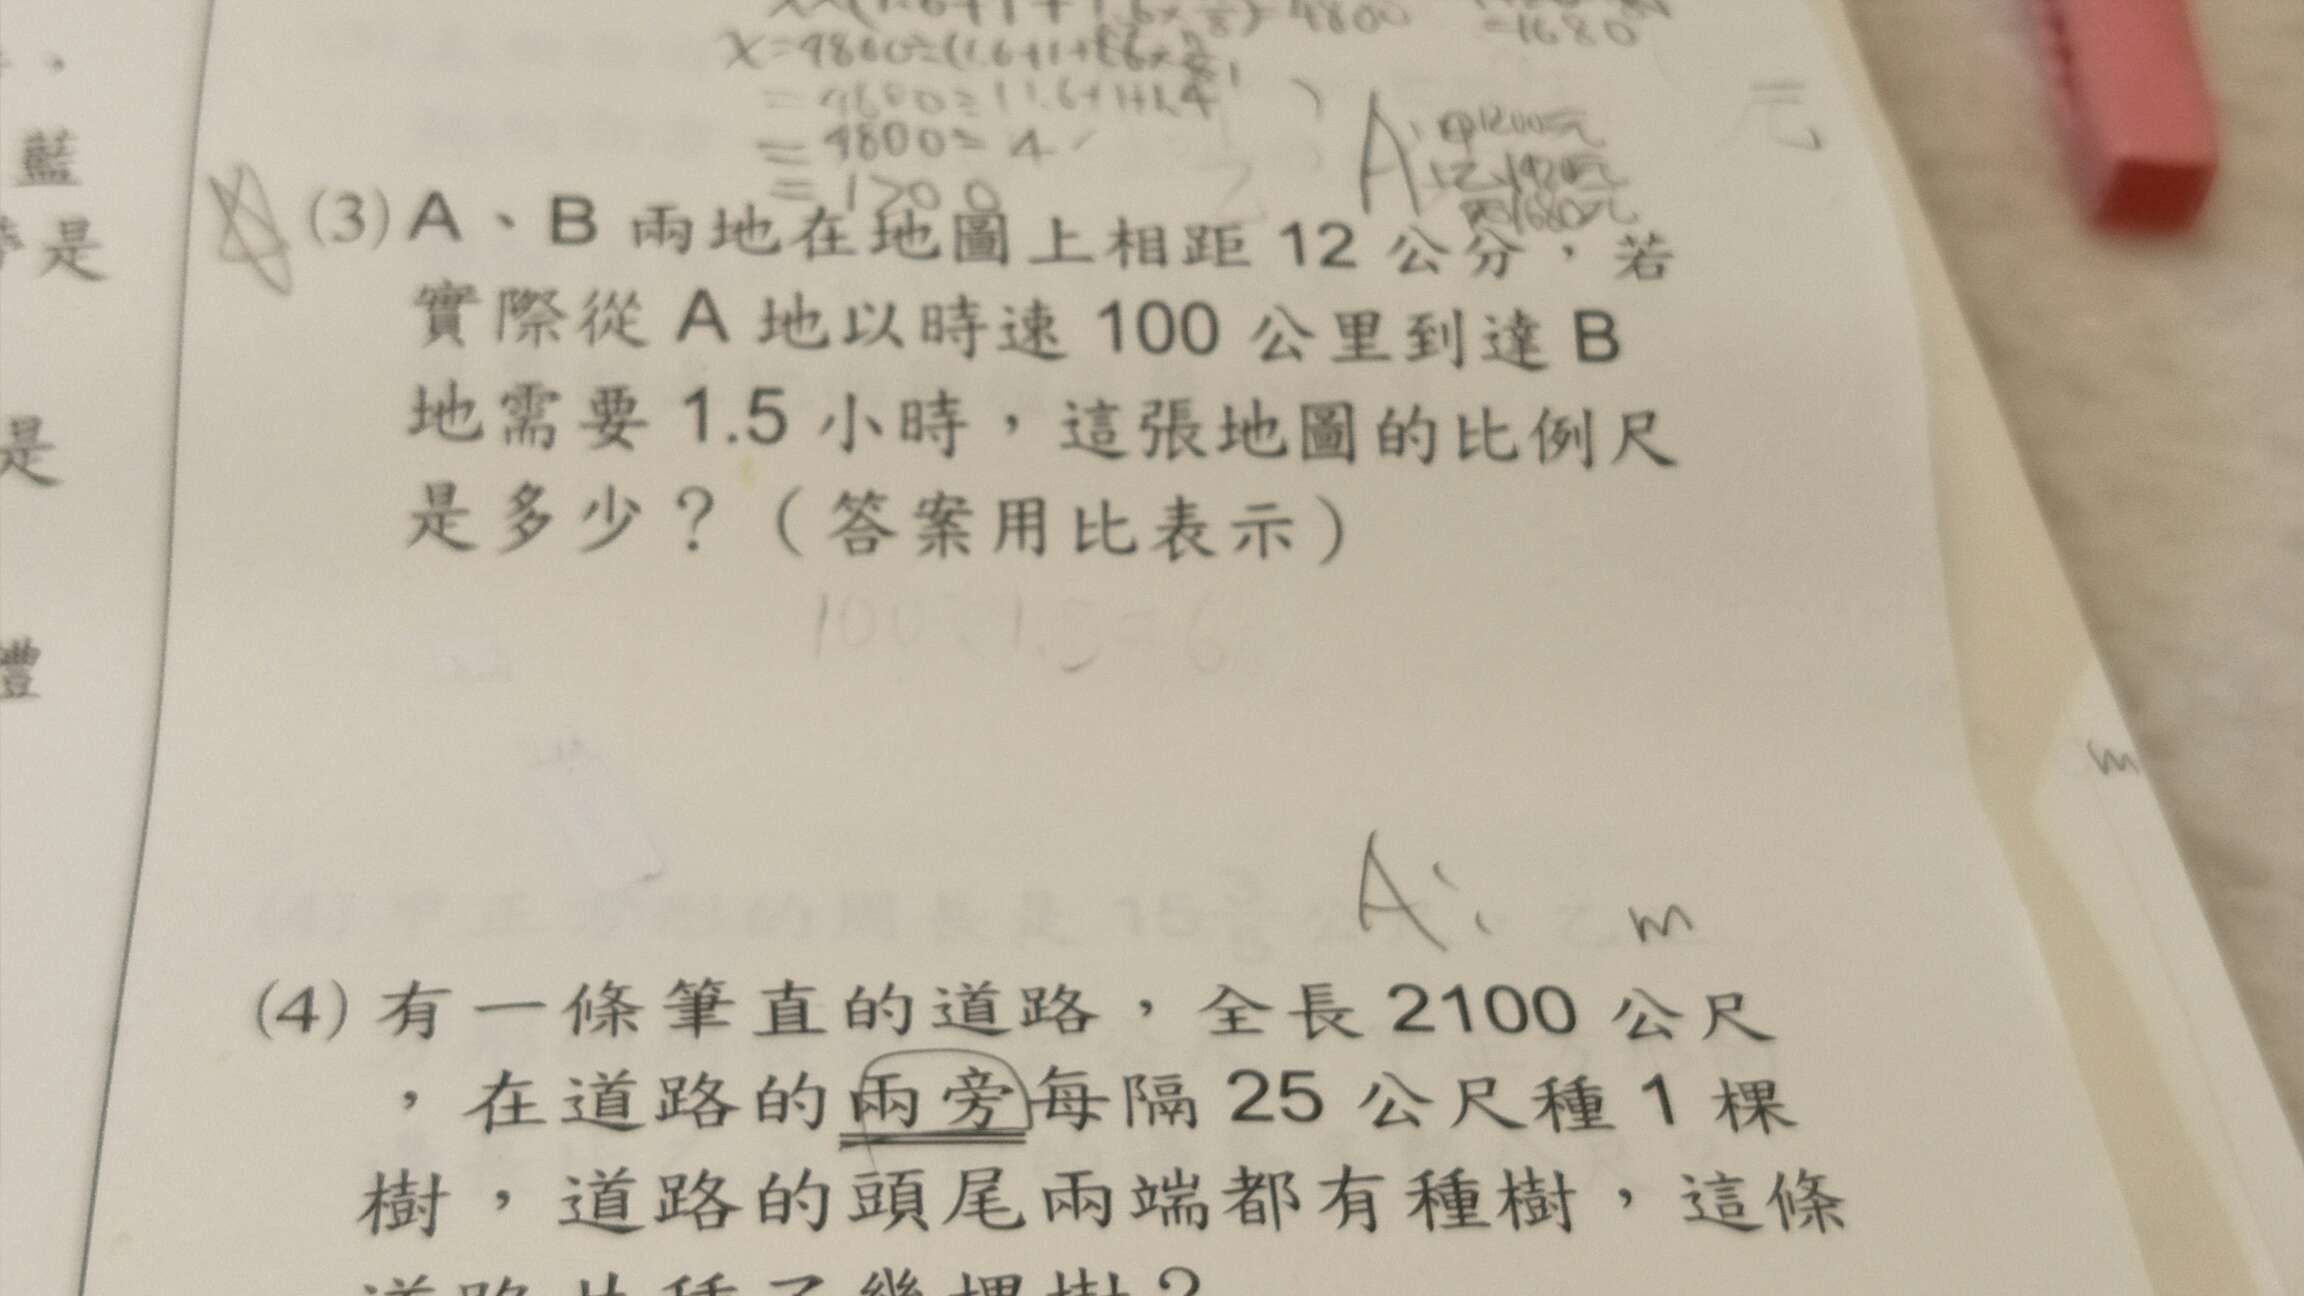 =1680
x=4800÷(1.6+1+1.6×
=4800÷(1.6+1+1.4
=4800÷4
=1200
A:甲1200元
乙1920元
丙1680元
元
藍
是
是
禮
(3) A、B 兩地在地圖上相距 12 公分，若
實際從 A 地以時速 100 公里到達 B
地需要 1.5 小時，這張地圖的比例尺
是多少？（答案用比表示）
A:
m
m
(4) 有一條筆直的道路，全長 2100 公尺
，在道路的兩旁每隔 25 公尺種 1 棵
樹，道路的頭尾兩端都有種樹，這條
道路共種了幾棵樹？